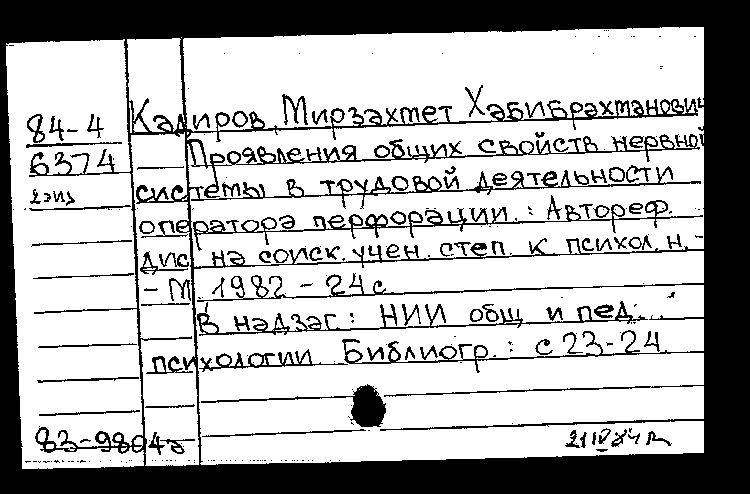 84-4
6374
2 экз
Кадиров, Мирзахмет Хабибрахманович
Проявления общих свойств нервной
системы в трудовой деятельности
оператора перфорации. : Автореф.
дис. на соиск. учен. степ. к. психол. н. -
- М. 1982 - 24 с.
В надзаг.: НИИ общ. и пед.
психологии. Библиогр.: с 23-24.
83-9804а